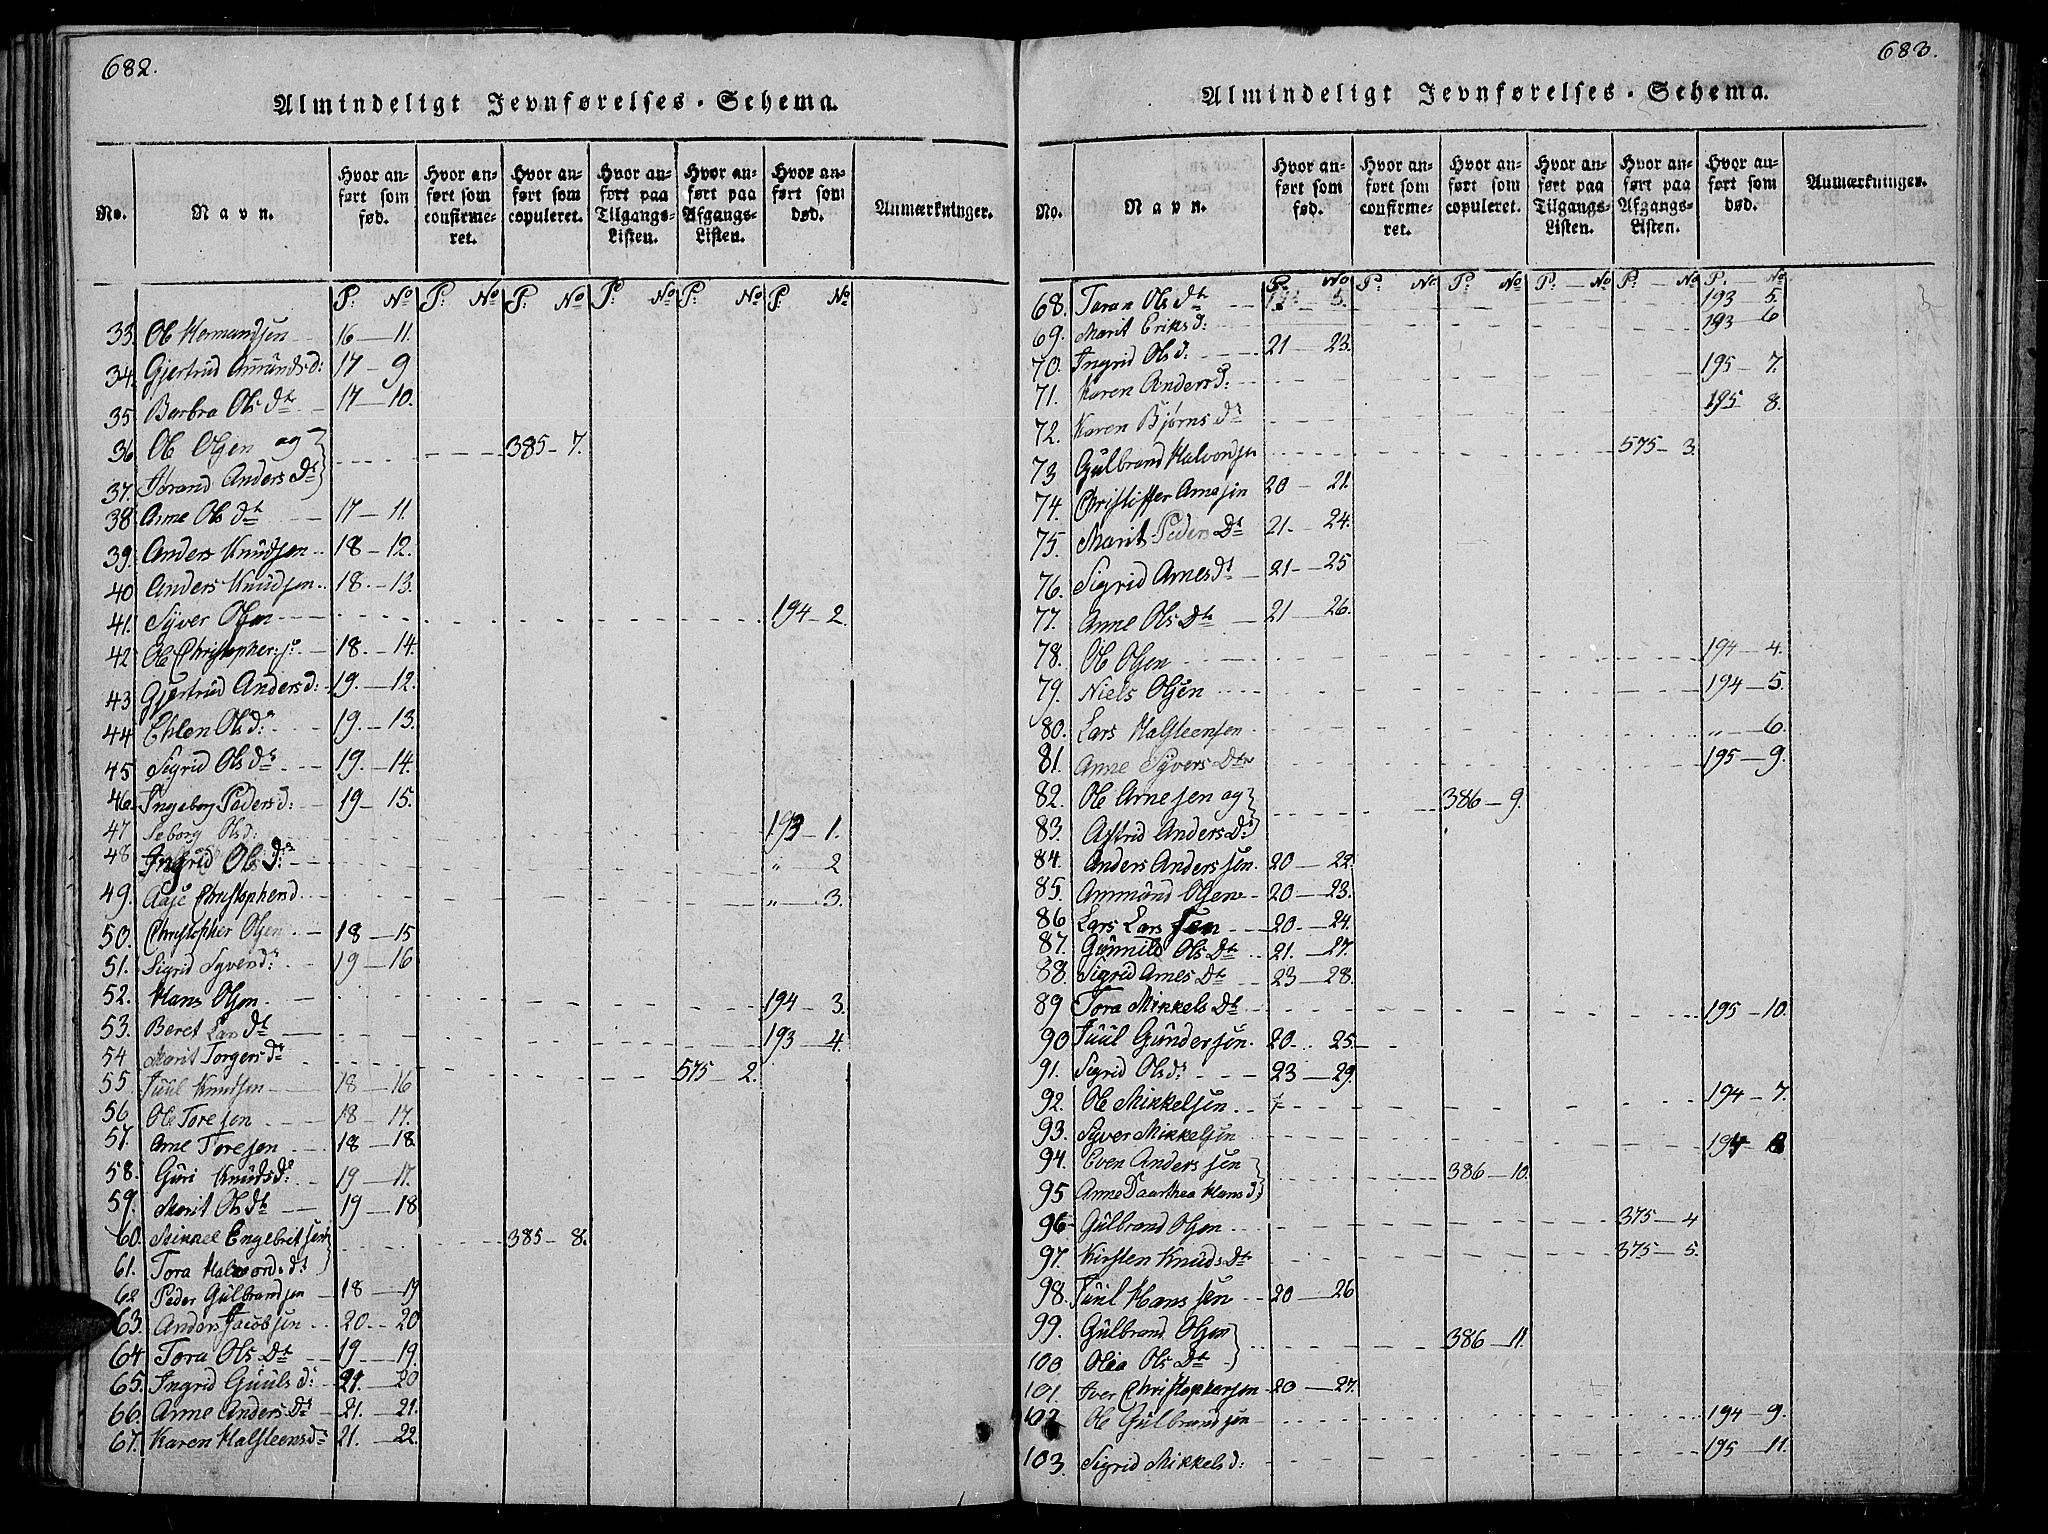 682.
Almindeligt Jevnførelses-Schema.
No. Navn. Hvor anført som fød. Hvor anført som confirmeret. Hvor anført som copuleret. Hvor anført paa Tilgangs-Listen. Hvor anført paa Afgangs-Listen. Hvor anført som død. Anmærkninger.
P: No P: No P: No P: No P: No P No
33. Ole Hermandsen 16 — 11.
34. Gjertrud Amunds d: 17 — 9
35 Barbra Ols Dtr 17 — 10.
36 Ole Olsen og 385 — 7.
37. Jorand Anders Dt
38 Anne Ols dtr 17 — 11.
39. Anders Knudsen 18 — 12.
40 Anders Knudsen 18. — 13.
41. Syver Olsen 194 — 2.
42 Ole Christopher: s: 18. — 14.
43 Gjertrud Anders d: 19. — 12.
44 Ehlen Ols d: 19. — 13.
45 Sigrid Ols dtr 19. — 14.
46. Ingeborg Peders d: 19 — 15.
47 Seborg Ols d: 193 — 1.
48 Ingrid Ols d: " — 2
49. Aase Christophers d " — 3.
50. Christopher Olsen 18 — 15
51. Sigrid Syvers d: 19 — 16
52. Hans Olsen 194 — 3.
53. Beret Lars dtr 193 — 4.
54 Marit Torgers dtr 575 — 2.
55 Juul Knudsen 18 — 16
56 Ole Toresen 18 — 17.
57. Arne Toresen 18 — 18.
58. Guri Knuds d: 19 — 17.
59. Marit Ols dtr 19 — 18
60. Mikkel Engebretsen 385 — 8.
61. Tora Halvords dt
62 Peder Gulbrandsen 18 — 19
63. Anders Jacobsen 20. — 20
64 Tora Ols Dtr 19 — 19.
65. Ingrid Guuls d: 21. — 20
66. Anne Anders Dt 21. — 21.
67. Karen Halsteens d: 21. — 22.
683.
Almindeligt Jevnførelses-Schema.
No. Navn. Hvor anført som fød. Hvor anført som confirmeret. Hvor anført som copuleret. Hvor anført paa Tilgangs-Listen. Hvor anført paa Afgangs-Listen. Hvor anført som død. Anmærkninger.
P: No P: No P: No P: No P: No P. No
68. Toran Ols dtr 193 5.
69. Marit Eriks d: 193 — 6
70. Ingrid Ols d: 21 — 23.
71. Karen Anders d: 195 — 7.
72. Karen Bjørns dt 195 8.
73 Gulbrand Halvordsen 575 — 3.
74. Christoffer Arnesen 20 — 21.
75. Marit Peders Dt 21. — 24.
76. Sigrid Arnes dt 21 — 25
77. Anne Ols Dtr 21 — 26.
78. Ole Olsen 194 — 4.
79. Niels Olsen 194 — 5.
80. Lars Halsteensen " — 6.
81. Anne Syvers Dtr 195 — 9.
82. Ole Arnesen og 386 — 9.
83. Astrid Anders Dt
84. Anders Anderssen 20 — 22.
85. Ammund Olsen 20 — 23.
86 Lars Larssen 20. — 24.
87. Gunnild Ols Dtr 21. — 27.
88. Sigrid Arnes Dtr 23 — 28.
89 Tora Mikkels Dtr 195 — 10.
90 Juul Gundersen 20. — 25.
91. Sigrid Ols d: 23 — 29.
92. Ole Mikkelsen 194 — 7.
93. Syver Mikkelsen 194 8
94. Even Anderssen 386 — 10.
95 Anne Daarthea Hans D:
96 Gulbrand Olsen 375 — 4
97. Kirsten Knuds Dtr 375 — 5.
98. Juul Hanssen 20 — 26
99. Gulbrand Olsen 386 — 11.
100 Olea Ols Dtr
101. Iver Christophersen 20 — 27.
102 Ole Gulbrandsen 194 — 9.
103. Sigrid Mikkels d: 195 — 11.